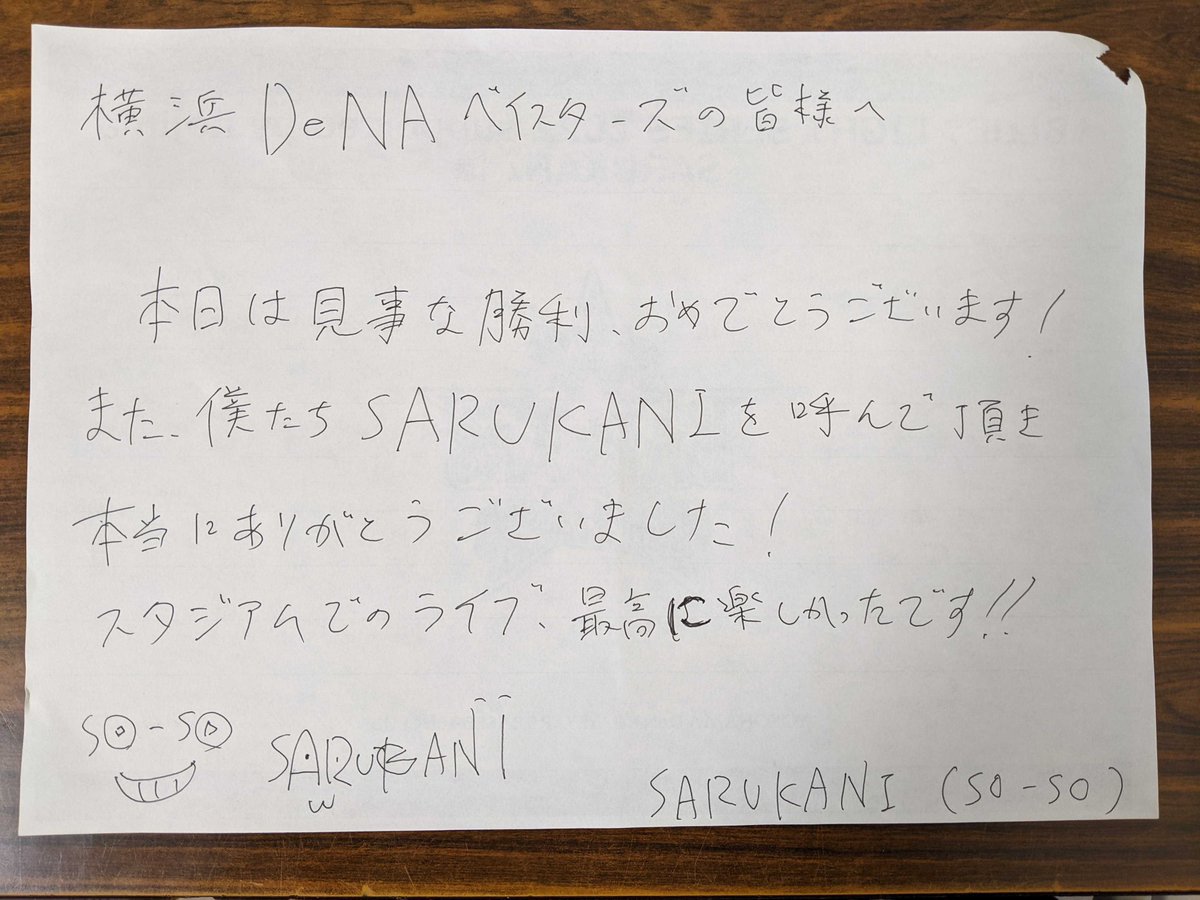 横浜DeNAベイスターズの皆様へ
本日は見事な勝利、おめでとうございます!
また、僕たちSARUKANIを呼んで頂き
本当にありがとうございました!
スタジアムでのライブ、最高に楽しかったです!!
SO-SO
SARUKANI
SARUKANI (SO-SO)